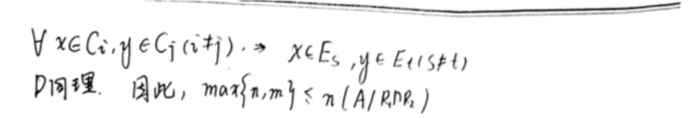 ∀ x∈Ci, y∈Cj (i≠j). → x∈Es, y∈Et (s≠t)
D同理. 因此, max{n,m} ≤ n(A/R₁∩R₂)